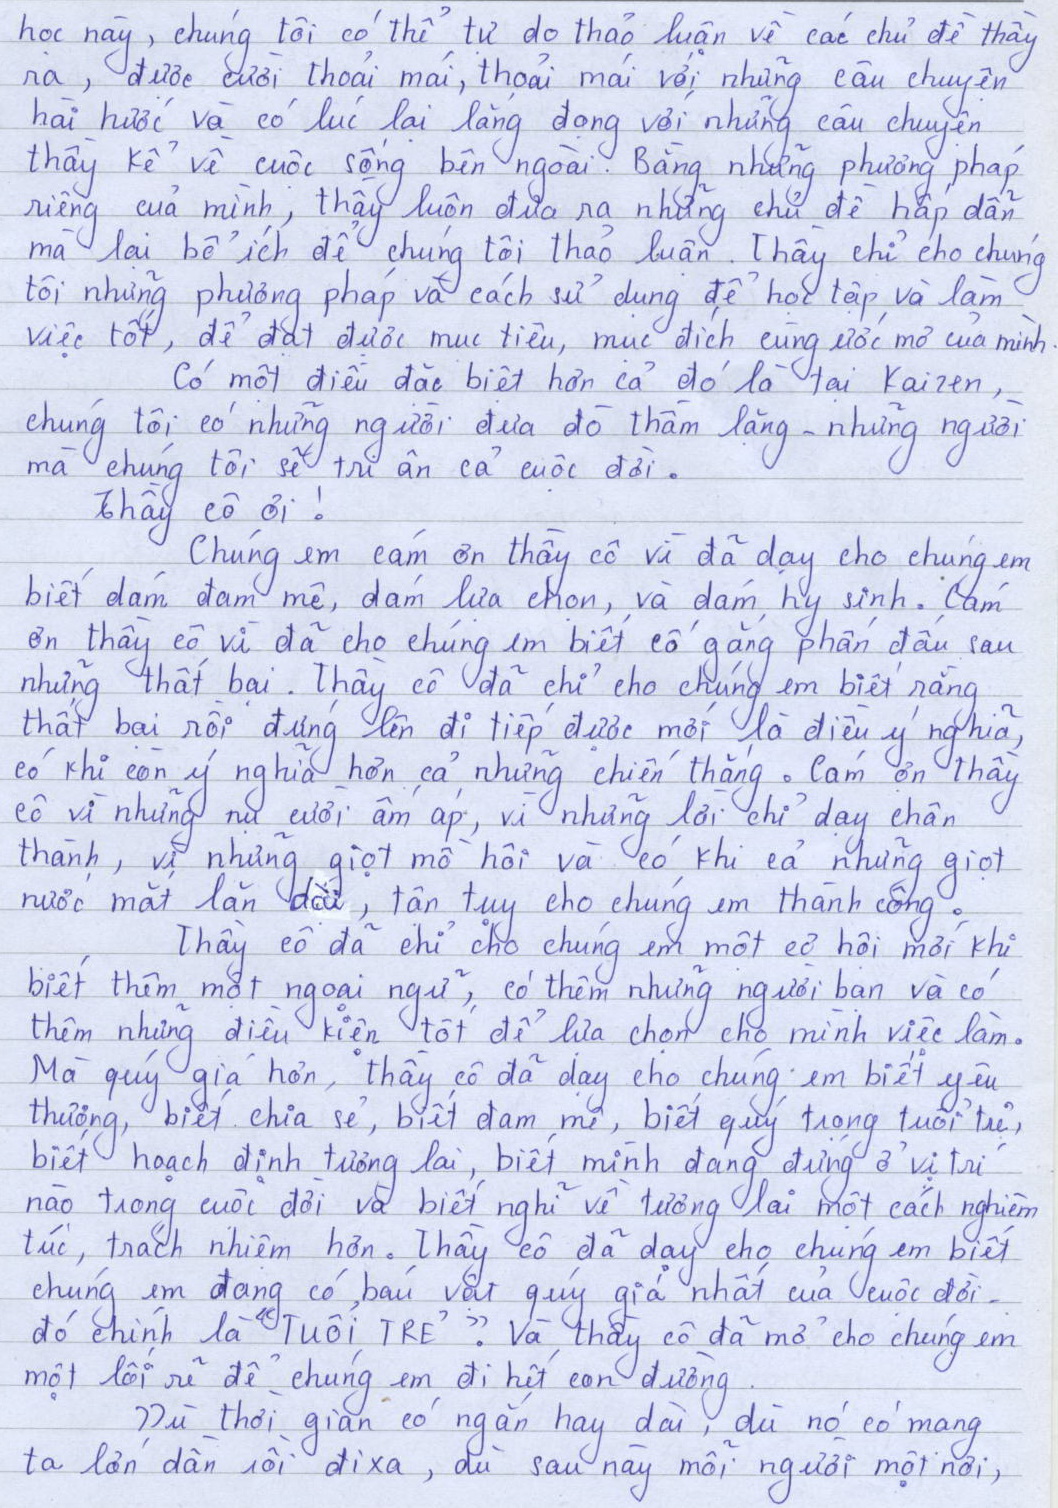 học này, chúng tôi có thể tự do thảo luận về các chủ đề thầy
ra, được cười thoải mái, thoải mái với những câu chuyện
hài hước và có lúc lại lắng đọng với những câu chuyện
thầy kể về cuộc sống bên ngoài. Bằng những phương pháp
riêng của mình, thầy luôn đưa ra những chủ đề hấp dẫn
mà lại bổ ích để chúng tôi thảo luận. Thầy chỉ cho chúng
tôi những phương pháp và cách sử dụng để học tập và làm
việc tốt, để đạt được mục tiêu, mục đích cùng ước mơ của mình.
Có một điều đặc biệt hơn cả đó là tại Kaizen,
chúng tôi có những người đưa đò thầm lặng - những người
mà chúng tôi sẽ tri ân cả cuộc đời.
Thầy cô ơi!
Chúng em cám ơn thầy cô vì đã dạy cho chúng em
biết dám đam mê, dám lựa chọn, và dám hy sinh. Cám
ơn thầy cô vì đã cho chúng em biết cố gắng phấn đấu sau
những thất bại. Thầy cô đã chỉ cho chúng em biết rằng
thất bại rồi đứng lên đi tiếp được mới là điều ý nghĩa,
có khi còn ý nghĩa hơn cả những chiến thắng. Cám ơn thầy
cô vì những nụ cười ấm áp, vì những lời chỉ dạy chân
thành, vì những giọt mồ hôi và có khi cả những giọt
nước mắt lăn dài, tận tụy cho chúng em thành công.
Thầy cô đã chỉ cho chúng em một cơ hội mới khi
biết thêm một ngoại ngữ, có thêm những người bạn và có
thêm những điều kiện tốt để lựa chọn cho mình việc làm.
Mà quý giá hơn, thầy cô đã dạy cho chúng em biết yêu
thương, biết chia sẻ, biết đam mê, biết quý trọng tuổi trẻ,
biết hoạch định tương lai, biết mình đang đứng ở vị trí
nào trong cuộc đời và biết nghĩ về tương lai một cách nghiêm
túc, trách nhiệm hơn. Thầy cô đã dạy cho chúng em biết
chúng em đang có báu vật quý giá nhất của cuộc đời -
đó chính là "TUỔI TRẺ". Và thầy cô đã mở cho chúng em
một lối rẽ để chúng em đi hết con đường.
Dù thời gian có ngắn hay dài, dù nó có mang
ta lớn dần rồi đi xa, dù sau này mỗi người một nơi,